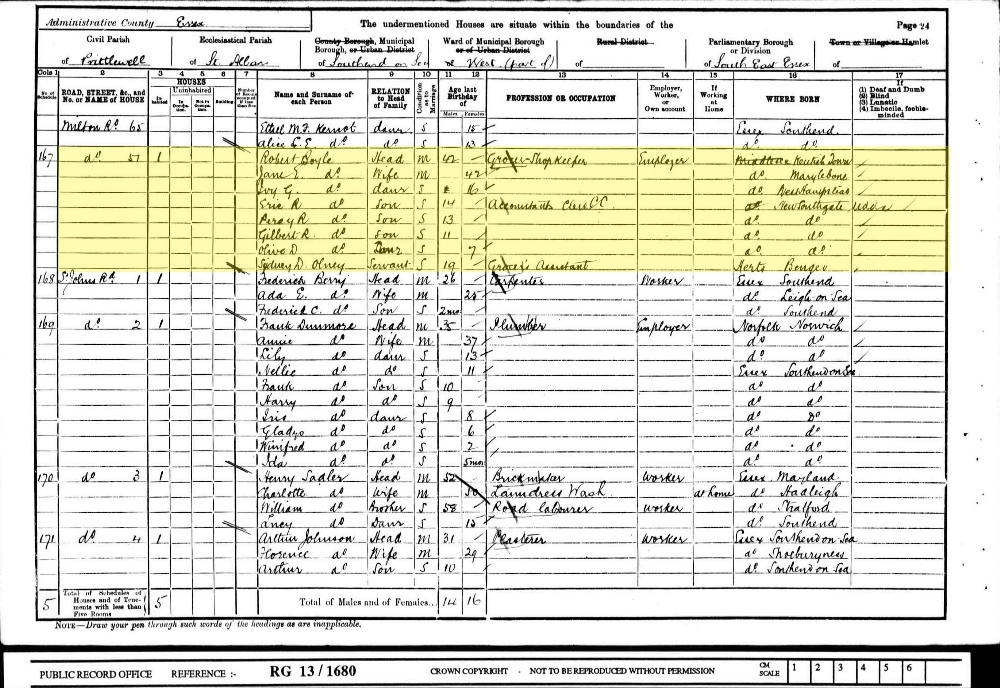 Administrative County Essex
The undermentioned Houses are situate within the boundaries of the
Page 24
Civil Parish of Prittlewell
Ecclesiastical Parish of St. Alban
County Borough, Municipal Borough, or Urban District of Southend on Sea
Ward of Municipal Borough or of Urban District of West (part of)
Rural District of
Parliamentary Borough or Division of South East Essex
Town or Village or Hamlet of
Cols 1 2 3 4 5 6 7 8 9 10 11 12 13 14 15 16 17
No. of Schedule
ROAD, STREET, &c., and No. or NAME of HOUSE
HOUSES
In-habited
Uninhabited
In Occupation.
Not in Occupation
Building
Name and Surname of each Person
RELATION to Head of Family
Condition as to Marriage
Age last Birthday of
Males Females
PROFESSION OR OCCUPATION
Employer, Worker, or Own account
If Working at Home
WHERE BORN
If (1) Deaf and Dumb (2) Blind (3) Lunatic (4) Imbecile, feeble-minded
Milton Rd 65 Ethel M.F. Kernot daur S 15 Essex Southend
Alice E.E. do do S 13 do do
167 do 57 1 Robert Boyle Head M 42 Grocer Shopkeeper Employer Kentish Town
Jane E. do Wife M 42 do Marylebone
Ivy G. do daur S 16 do West Hampstead
Eric R do Son S 14 Accountants Clerk New Southgate Middx
Percy R do Son S 13 do do
Gilbert R. do Son S 11 do do
Olive D do Daur S 7 do do
Sydney D. Olney Servant S 19 Grocer's Assistant Herts Bengeo
168 St Johns Rd 1 1 Frederick Berry Head M 26 Carpenter Worker Essex Southend
Ada E. do Wife M 25 do Leigh on Sea
Frederick C. do Son S 2mo do Southend
169 do 2 1 Frank Dunmore Head M 35 Plumber Employer Norfolk Norwich
Annie do Wife M 37 do do
Lily do daur S 13 do do
Nellie do do S 11 Essex Southend on Sea
Frank do Son S 10 do do
Harry do do S 9 do do
Iris do daur S 8 do Do
Gladys do do S 6 do do
Winifred do do S 2 do do
Ida do do S 5mo do do
170 do 3 1 Henry Sadler Head M 52 Brickmaker Worker Essex Mayland
Charlotte do Wife M 50 Laundress Wash at home do Hadleigh
William do Brother S 58 Road labourer Worker do Stratford
Lucy do Daur S 15 do Southend
171 do 4 1 Arthur Johnson Head M 31 Plasterer Worker Essex Southend on Sea
Florence do Wife M 29 do Shoeburyness
Arthur do Son S 10 do Southend on Sea
5 Total of Schedules of Houses and of Tenements with less than Five Rooms 5 Total of Males and of Females... 14 16
NOTE—Draw your pen through such words of the headings as are inapplicable.
PUBLIC RECORD OFFICE REFERENCE :- RG 13/1680 CROWN COPYRIGHT - NOT TO BE REPRODUCED WITHOUT PERMISSION CM SCALE 1 2 3 4 5 6